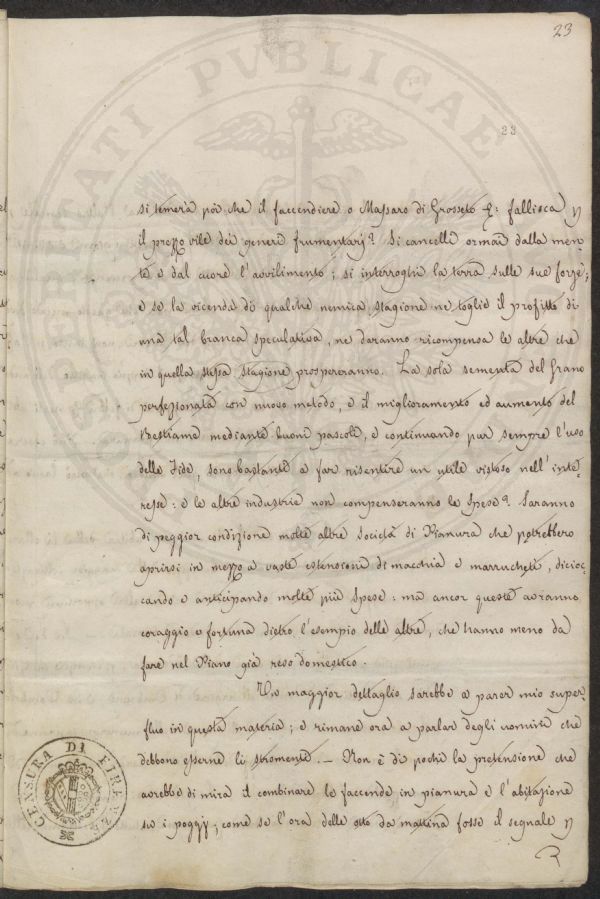 23
23
si temerà poi che il faccendiere o Massaro di Grosseto &: fallisca p
il prezzo vile dei generi frumentarj? Si cancelli ormai dalla men-
te e dal cuore l'avvilimento; si interroghi la terra sulle sue forze;
e se la vicenda di qualche nemica stagione ne toglie il profitto di
una tal branca speculativa, ne daranno ricompensa le altre che
in quella stessa stagione prospereranno. La sola sementa del Grano
perfezionata con nuovo metodo, e il miglioramento ed aumento del
Bestiame mediante buoni pascoli, e continuando pur sempre l'uso
delle Fide, sono bastante a far risentire un utile vistoso nell'inte-
resse: e le altre industrie non compenseranno le Spese? Saranno
di peggior condizione molte altre Società di Pianura che potrebbero
aprirsi in mezzo a vaste estensioni di macchia e marrucheti, dicioc-
cando e anticipando molte più Spese: ma ancor queste avranno
coraggio e fortuna dietro l'esempio delle altre, che hanno meno da
fare nel Piano già reso domestico.
Un maggior dettaglio sarebbe a parer mio super-
fluo in questa materia; e rimane ora a parlar degli uomini che
debbono esserne li stromenti. - Non è di pochi la pretensione che
avrebbe di mira il combinare le faccende in pianura e l'abitazione
su i poggj; come se l'ora delle otto da mattina fosse il segnale p
CENSURA DI FIRENZE
PROSPERITATI PVBLICAE